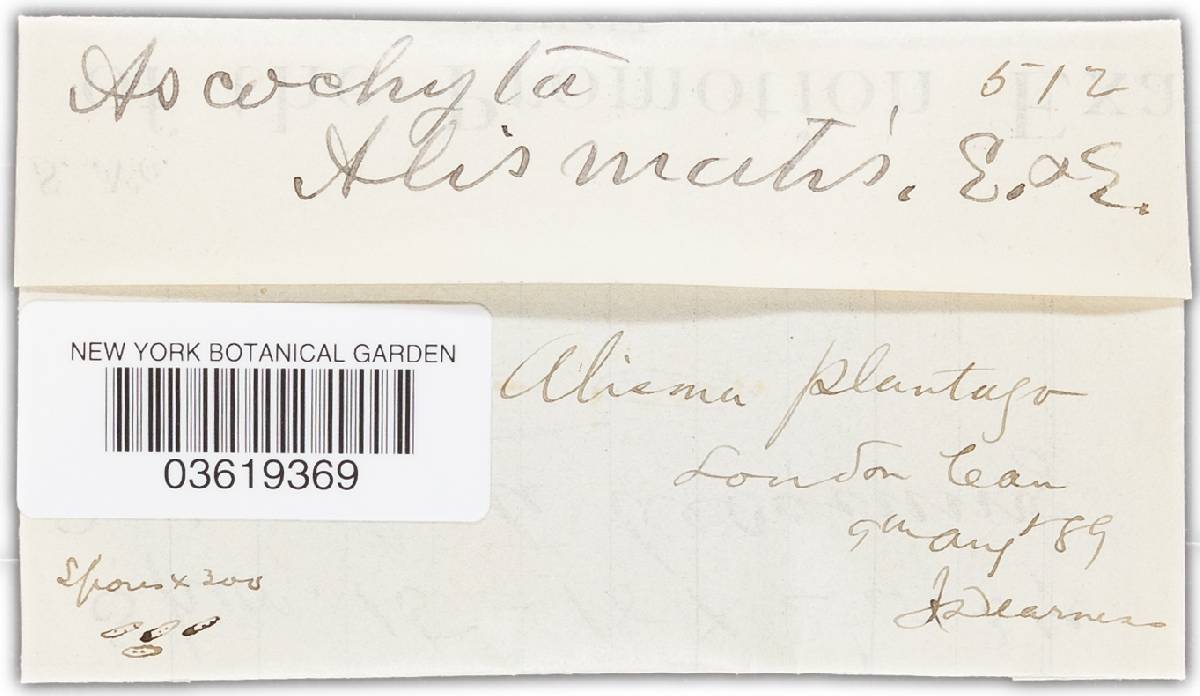 Ascochyta 512
Alismatis. E. & E.
NEW YORK BOTANICAL GARDEN
03619369
Alisma plantago
London Can
9th Augt 89
J Dearness
Spores x 300